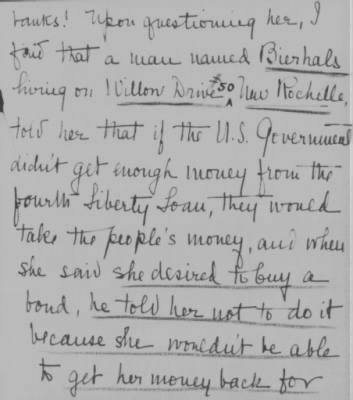 banks! Upon questioning her, I
find that a man named Bierhals
living on Willow Drive $50 New Rochelle,
told her that if the U.S. Government
didn't get enough money from the
fourth Liberty Loan, they would
take the people's money, and when
she said she desired to buy a
bond, he told her not to do it
because she wouldn't be able
to get her money back for